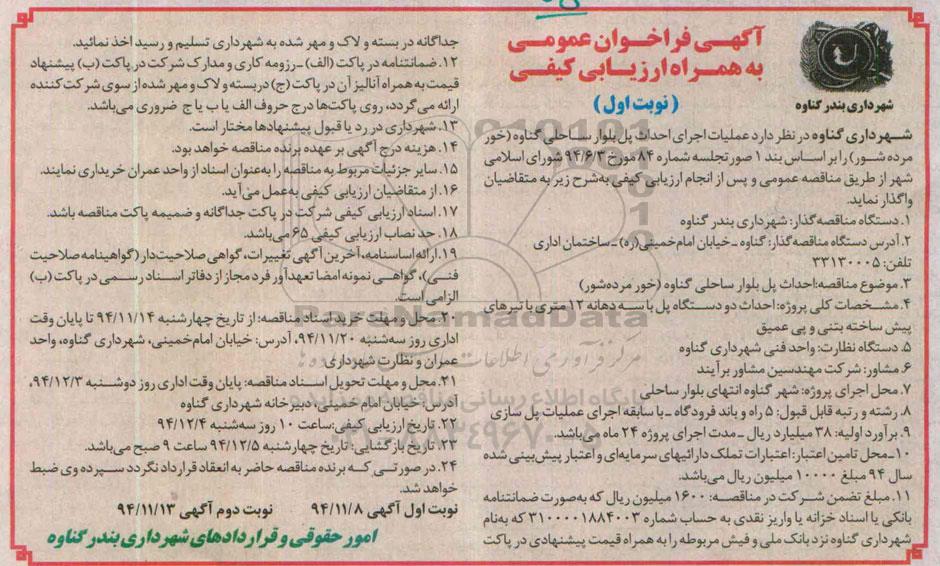 آگهی فراخوان عمومی
به همراه ارزیابی کیفی
(نوبت اول)
شهرداری بندر گناوه
شهرداری گناوه در نظر دارد عملیات اجرای احداث پل بلوار ساحلی گناوه (خور
مرده شور) را بر اساس بند ۱ صورتجلسه شماره ۸۴ مورخ ۹۴/۶/۳ شورای اسلامی
شهر از طریق مناقصه عمومی و پس از انجام ارزیابی کیفی به‌شرح زیر به متقاضیان
واگذار نماید.
۱. دستگاه مناقصه گذار: شهرداری بندر گناوه
۲. آدرس دستگاه مناقصه گذار: گناوه ـ خیابان امام خمینی(ره) ـ ساختمان اداری
تلفن: ۳۳۱۳۰۰۰۵
۳. موضوع مناقصه: احداث پل بلوار ساحلی گناوه (خور مرده‌شور)
۴. مشخصات کلی پروژه: احداث دو دستگاه پل با سه دهانه ۱۲ متری با تیرهای
پیش ساخته بتنی و پی عمیق
۵. دستگاه نظارت: واحد فنی شهرداری گناوه
۶. مشاور: شرکت مهندسین مشاور برآیند
۷. محل اجرای پروژه: شهر گناوه انتهای بلوار ساحلی
۸. رشته و رتبه قابل قبول: ۵ راه و باند فرودگاه ـ با سابقه اجرای عملیات پل سازی
۹. برآورد اولیه: ۳۸ میلیارد ریال ـ مدت اجرای پروژه ۲۴ ماه می‌باشد.
۱۰ـ محل تامین اعتبار: اعتبارات تملک دارائیهای سرمایه‌ای و اعتبار پیش‌بینی شده
سال ۹۴ مبلغ ۱۰۰۰۰ میلیون ریال می‌باشد.
۱۱. مبلغ تضمن شرکت در مناقصه: ۱۶۰۰ میلیون ریال که به‌صورت ضمانتنامه
بانکی یا اسناد خزانه یا واریز نقدی به حساب شماره ۳۱۰۰۰۰۱۸۸۴۰۰۳ که به‌نام
شهرداری گناوه نزد بانک ملی و فیش مربوطه را به همراه قیمت پیشنهادی در پاکت
جداگانه در بسته و لاک و مهر شده به شهرداری تسلیم و رسید اخذ نمائید.
۱۲. ضمانتنامه در پاکت (الف) ـ رزومه کاری و مدارک شرکت در پاکت (ب) پیشنهاد
قیمت به همراه آنالیز آن در پاکت (ج) دربسته و لاک و مهر شده از سوی شرکت کننده
ارائه می‌گردد، روی پاکت‌ها درج حروف الف یا ب یا ج ضروری می‌باشد.
۱۳. شهرداری در رد یا قبول پیشنهادها مختار است.
۱۴. هزینه درج آگهی بر عهده برنده مناقصه خواهد بود.
۱۵. سایر جزئیات مربوط به مناقصه را به‌عنوان اسناد از واحد عمران خریداری نمایند.
۱۶. از متقاضیان ارزیابی کیفی به‌عمل می‌آید.
۱۷. اسناد ارزیابی کیفی شرکت در پاکت جداگانه و ضمیمه پاکت مناقصه باشد.
۱۸. حد نصاب ارزیابی کیفی ۶۵ می‌باشد.
۱۹. ارائه اساسنامه، آخرین آگهی تغییرات، گواهی صلاحیت‌دار (گواهینامه صلاحیت
فنی)، گواهی نمونه امضا تعهدآور فرد مجاز از دفاتر اسناد رسمی در پاکت (ب)
الزامی است.
۲۰. محل و مهلت خرید اسناد مناقصه: از تاریخ چهارشنبه ۹۴/۱۱/۱۴ تا پایان وقت
اداری روز سه‌شنبه ۹۴/۱۱/۲۰، آدرس: خیابان امام‌خمینی، شهرداری گناوه، واحد
عمران و نظارت شهرداری
۲۱. محل و مهلت تحویل اسناد مناقصه: پایان وقت اداری روز دوشنبه ۹۴/۱۲/۳،
آدرس: خیابان امام خمینی، دبیرخانه شهرداری گناوه
۲۲. تاریخ ارزیابی کیفی: ساعت ۱۰ روز سه‌شنبه ۹۴/۱۲/۴
۲۳. تاریخ بازگشایی: تاریخ چهارشنبه ۹۴/۱۲/۵ ساعت ۹ صبح می‌باشد.
۲۴. در صورتی که برنده مناقصه حاضر به انعقاد قرارداد نگردد سپرده وی ضبط
خواهد شد.
نوبت اول آگهی ۹۴/۱۱/۸ نوبت دوم آگهی ۹۴/۱۱/۱۳
امور حقوقی و قراردادهای شهرداری بندر گناوه
ParsNamadData